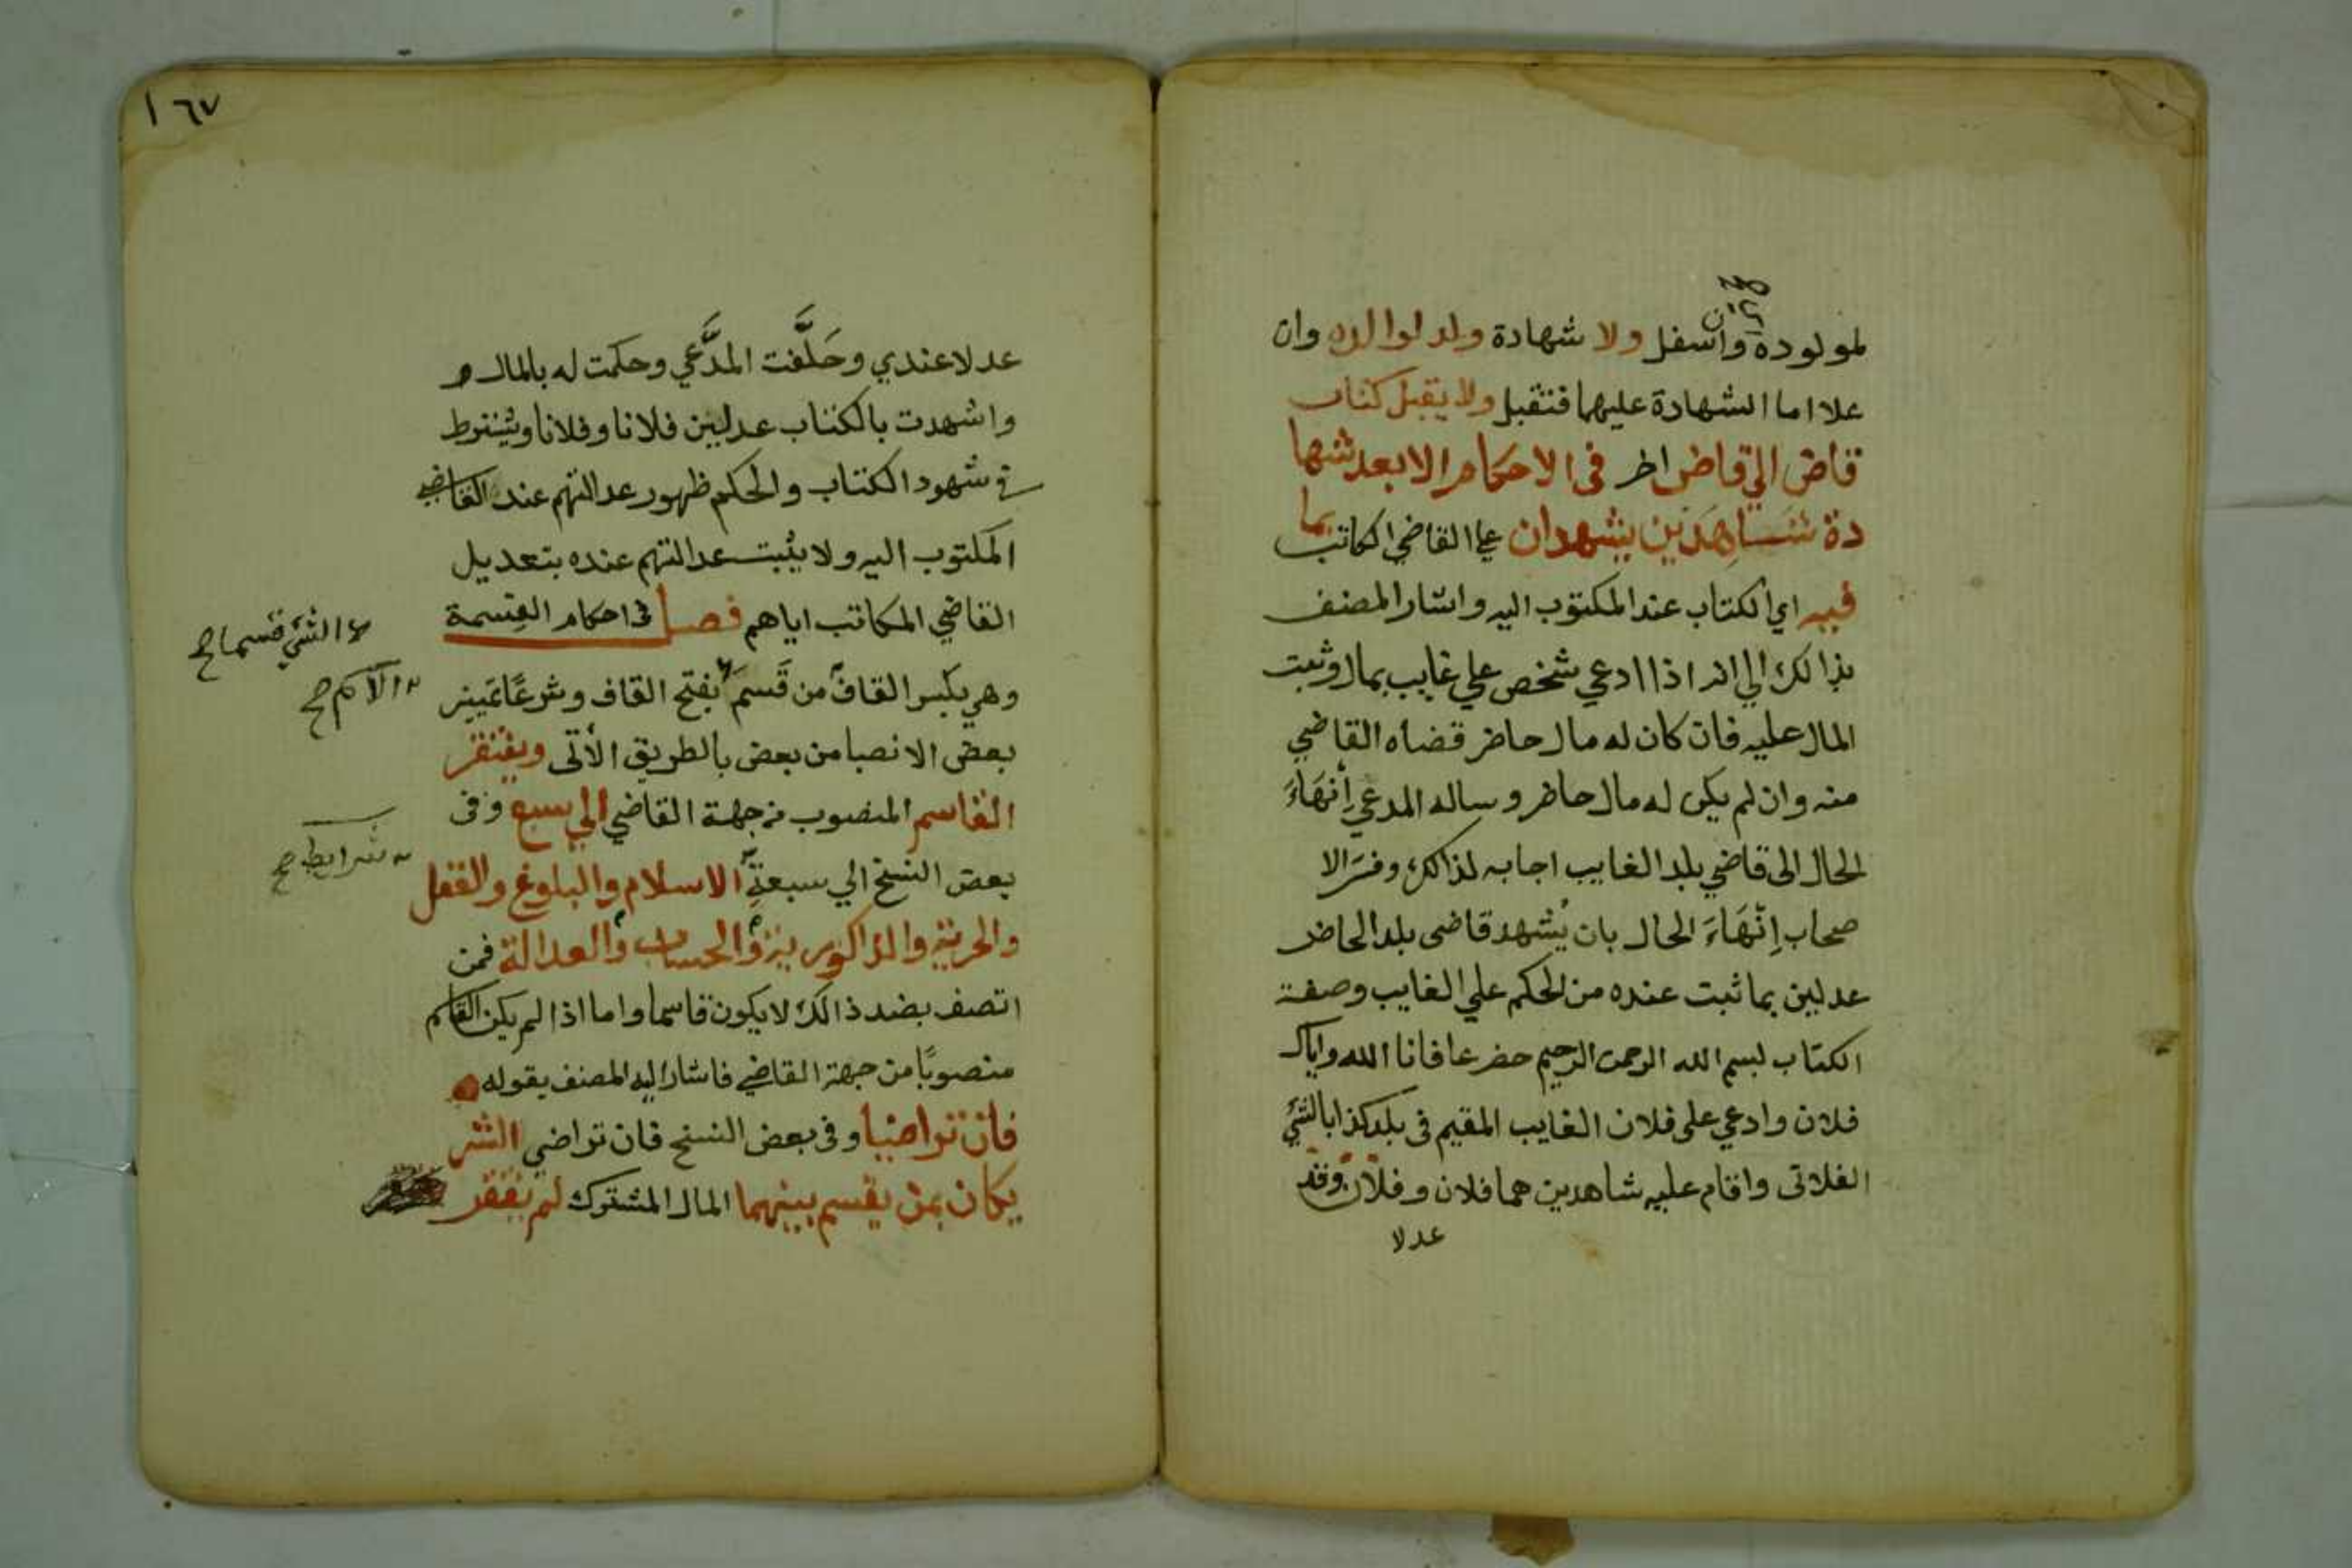 لمولوده وان سفل ولا شهادة ولد لوالده وان
علا اما الشهادة عليهما فتقبل ولا يقبل كتاب
قاض الي قاض اخر في الاحكام الا بعد شها
دة شاهدين يشهدان علي القاضي الكاتب بما
فيه اي الكتاب عند المكتوب اليه واشار المصنف
بذالك الي انه اذا ادعي شخص علي غايب بمال وثبت
المال عليه فان كان له مال حاضر قضاه القاضي
منه وان لم يكن له مال حاضر وساله المدعي إنهاءَ
الحال الى قاضي بلد الغايب اجابه لذالك وفسر الا
صحاب إنهَاءَ الحال بان يُشهد قاضى بلد الحاضر
عدلين بما ثبت عنده من الحكم علي الغايب وصفة
الكتاب بسم الله الرحمن الرحيم حضر عافانا الله واياك
فلان وادعي على فلان الغايب المقيم في بلد كذا بالشئ
الفلاني واقام عليه شاهدين هما فلان وفلان وقد
عدلا
١٦٧
عدلا عندي وحَلَّفت المدَّعي وحكمت له بالمال
واشهدت بالكتاب عدلين فلانا وفلانا ويشترط
في شهود الكتاب والحكم ظهور عدالتهم عند القاضي
المكتوب اليه ولا يثبت عدالتهم عنده بتعديل
القاضي المكاتب اياهم فصل في احكام القسمة
وهي بكسر القاف من قَسمَ بفتح القاف وشرعًا تمييز
بعض الانصبا من بعض بالطريق الأتى ويفتقر
القاسم المنصوب من جهة القاضي الي سبع وفى
بعض النسخ الي سبعةِ الاسلام والبلوغ والعقل
والحرية والذاكورية والحساب والعدالة فمن
اتصف بضد ذالك لا يكون قاسما واما اذا لم يكن القاسم
منصوبًا من جهة القاضي فاشار اليه المصنف بقوله
فان تراضيا وفى بعض النسخ فان تراضى الشر
يكان بمن يقسم بينهما المال المشترك لم يفتقر
الشئ قسما صح
الاسم صح
شرايط صح